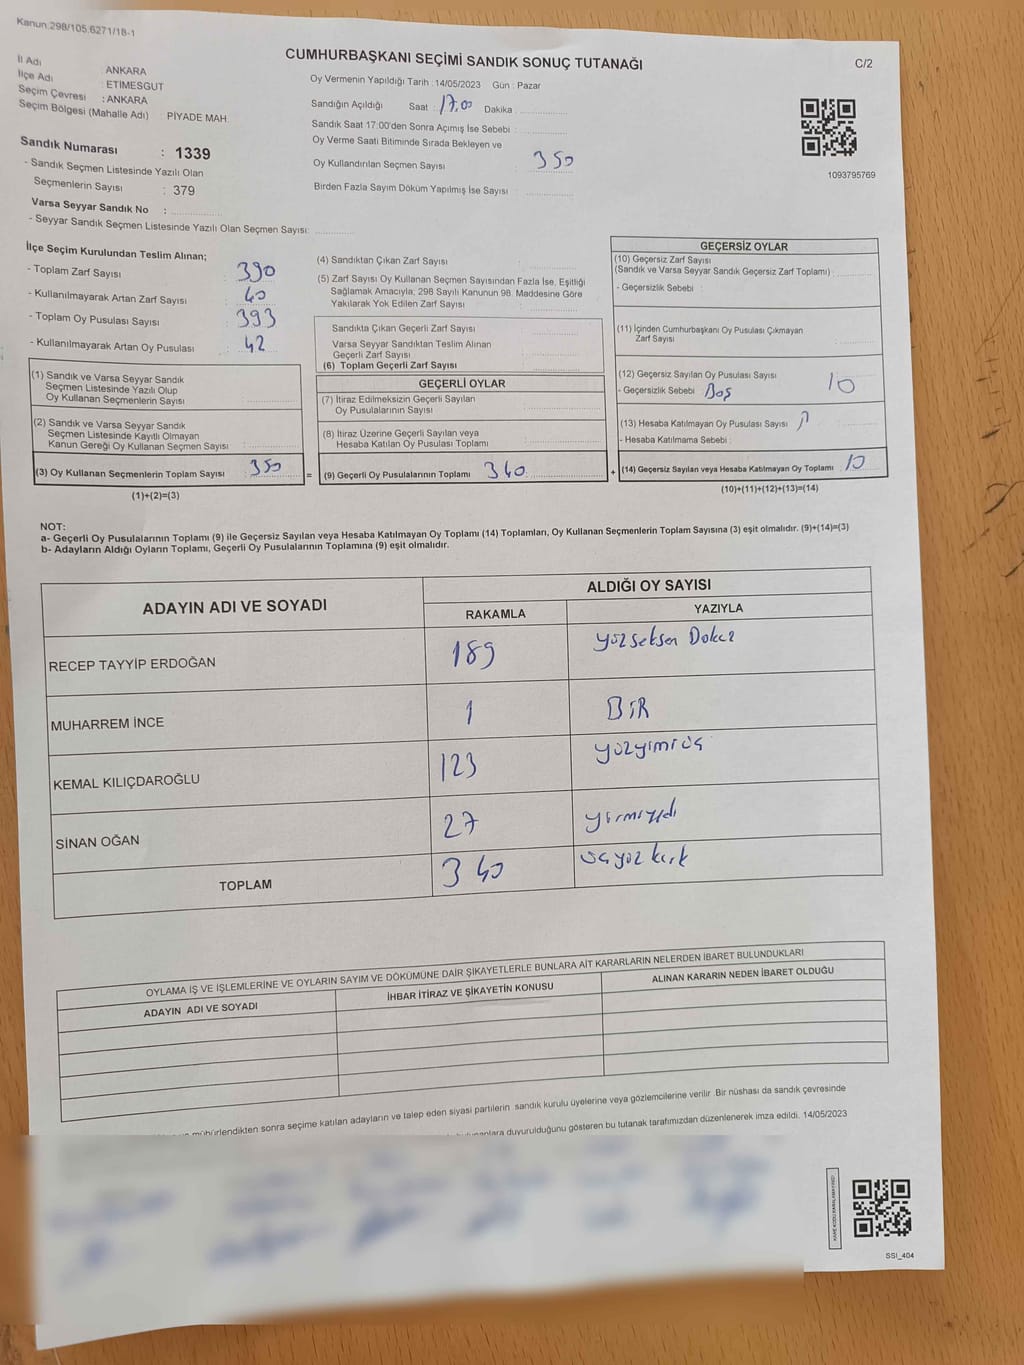 Kanun:298/105;6271/18-1
CUMHURBAŞKANI SEÇİMİ SANDIK SONUÇ TUTANAĞI
C/2
İl Adı : ANKARA
İlçe Adı : ETİMESGUT
Seçim Çevresi : ANKARA
Seçim Bölgesi (Mahalle Adı) PİYADE MAH.
Sandık Numarası : 1339
- Sandık Seçmen Listesinde Yazılı Olan
Seçmenlerin Sayısı : 379
Varsa Seyyar Sandık No :
- Seyyar Sandık Seçmen Listesinde Yazılı Olan Seçmen Sayısı:
Oy Vermenin Yapıldığı Tarih :14/05/2023 Gün : Pazar
Sandığın Açıldığı Saat : 17.00 Dakika
Sandık Saat 17:00'den Sonra Açımış İse Sebebi :
Oy Verme Saati Bitiminde Sırada Bekleyen ve
Oy Kullandırılan Seçmen Sayısı 350
Birden Fazla Sayım Döküm Yapılmış İse Sayısı :
1093795769
İlçe Seçim Kurulundan Teslim Alınan;
- Toplam Zarf Sayısı : 390
- Kullanılmayarak Artan Zarf Sayısı : 40
- Toplam Oy Pusulası Sayısı : 393
- Kullanılmayarak Artan Oy Pusulası : 42
(1) Sandık ve Varsa Seyyar Sandık
Seçmen Listesinde Yazılı Olup
Oy Kullanan Seçmenlerin Sayısı
(2) Sandık ve Varsa Seyyar Sandık
Seçmen Listesinde Kayıtlı Olmayan
Kanun Gereği Oy Kullanan Seçmen Sayısı
(3) Oy Kullanan Seçmenlerin Toplam Sayısı 350
(1)+(2)=(3)
(4) Sandıktan Çıkan Zarf Sayısı
(5) Zarf Sayısı Oy Kullanan Seçmen Sayısından Fazla İse, Eşitliği
Sağlamak Amacıyla; 298 Sayılı Kanunun 98. Maddesine Göre
Yakılarak Yok Edilen Zarf Sayısı
Sandıkta Çıkan Geçerli Zarf Sayısı
Varsa Seyyar Sandıktan Teslim Alınan
Geçerli Zarf Sayısı
(6) Toplam Geçerli Zarf Sayısı
GEÇERLİ OYLAR
(7) İtiraz Edilmeksizin Geçerli Sayılan
Oy Pusulalarının Sayısı
(8) İtiraz Üzerine Geçerli Sayılan veya
Hesaba Katılan Oy Pusulası Toplamı
= (9) Geçerli Oy Pusulalarının Toplamı 340
GEÇERSİZ OYLAR
(10) Geçersiz Zarf Sayısı
(Sandık ve Varsa Seyyar Sandık Geçersiz Zarf Toplamı) :
- Geçersizlik Sebebi :
(11) İçinden Cumhurbaşkanı Oy Pusulası Çıkmayan
Zarf Sayısı
(12) Geçersiz Sayılan Oy Pusulası Sayısı 10
- Geçersizlik Sebebi Boş
(13) Hesaba Katılmayan Oy Pusulası Sayısı
- Hesaba Katılmama Sebebi :
+ (14) Geçersiz Sayılan veya Hesaba Katılmayan Oy Toplamı 10
(10)+(11)+(12)+(13)=(14)
NOT:
a- Geçerli Oy Pusulalarının Toplamı (9) ile Geçersiz Sayılan veya Hesaba Katılmayan Oy Toplamı (14) Toplamları, Oy Kullanan Seçmenlerin Toplam Sayısına (3) eşit olmalıdır. (9)+(14)=(3)
b- Adayların Aldığı Oyların Toplamı, Geçerli Oy Pusulalarının Toplamına (9) eşit olmalıdır.
ADAYIN ADI VE SOYADI ALDIĞI OY SAYISI
RAKAMLA YAZIYLA
RECEP TAYYİP ERDOĞAN 189 yüzseksen Dokuz
MUHARREM İNCE 1 BİR
KEMAL KILIÇDAROĞLU 123 yüzyimrüç
SİNAN OĞAN 27 yirmiyedi
TOPLAM 340 üçyüz kırk
OYLAMA İŞ VE İŞLEMLERİNE VE OYLARIN SAYIM VE DÖKÜMÜNE DAİR ŞİKAYETLERLE BUNLARA AİT KARARLARIN NELERDEN İBARET BULUNDUKLARI
ADAYIN ADI VE SOYADI İHBAR İTİRAZ VE ŞİKAYETİN KONUSU ALINAN KARARIN NEDEN İBARET OLDUĞU
mühürlendikten sonra seçime katılan adayların ve talep eden siyasi partilerin sandık kurulu üyelerine veya gözlemcilerine verilir. Bir nüshası da sandık çevresinde
duyurulduğunu gösteren bu tutanak tarafımızdan düzenlenerek imza edildi. 14/05/2023
SSI_404